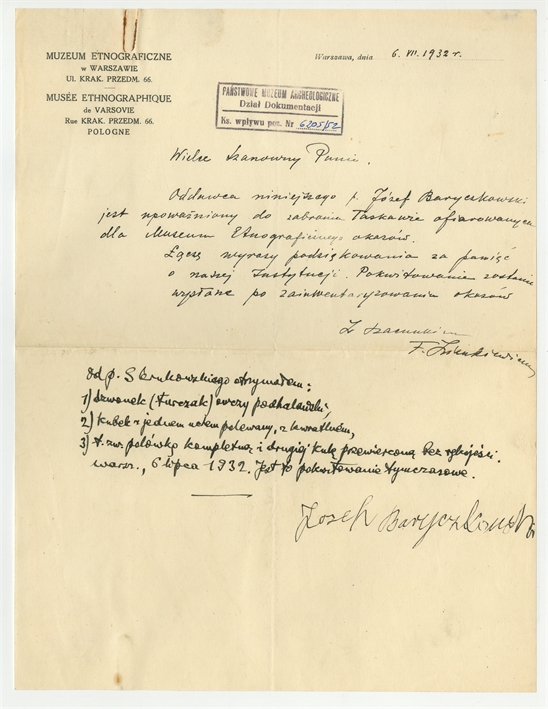 MUZEUM ETNOGRAFICZNE
W WARSZAWIE
UL. KRAK. PRZEDM. 66.
MUSÉE ETHNOGRAPHIQUE
de VARSOVIE
RUE KRAK. PRZEDM. 66.
POLOGNE
Warszawa, dnia 6. VII. 1932 r.
PAŃSTWOWE MUZEUM ARCHEOLOGICZNE
Dział Dokumentacji
Ks. wpływu poz. Nr 6205/52
Wielce Szanowny Panie.
Oddawca niniejszego p. Józef Baryczkowski
jest upoważniony do zabrania łaskawie ofiarowanych
dla Muzeum Etnograficznego okazów.
Łączę wyrazy podziękowania za pamięć
o naszej Instytucji. Pokwitowanie zostanie
wysłane po zainwentaryzowaniu okazów
Z szacunkiem
Od p. otrzymałem:
1) dzwonek (turczak) owczy podhalański,
2) kubek z jednem uchem polewany, z kwiatkiem,
3) t. zw. polówkę kompletną i drugiej kulę przewierconą bez rękojeści.
Warsz., 6 lipca 1932. Jest to pokwitowanie tymczasowe.
Józef Baryczkowski